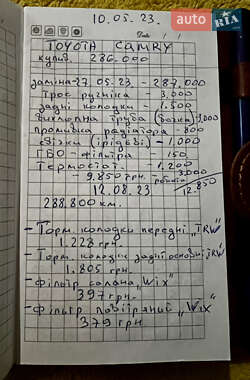 AUTO RIA
10.05.23.
Date / /
TOYOTA CAMRY
купил 286.000
заміна-27.05.23 - 287.000
Трос ручніка - 3.000
задні колодки - 1.500
вихлопна труба (бочка) 3,000
промивка радіатора - 800
свічки (іридієві) - 1,000
ГБО - фільтра 150
Термостат - 1.200
9.850 грн. робота 3.000
12.850
12.08.23
288.800 км.
- Торм. колодки передні "TRW"
1.228 грн.
- Торм. колодки задні основні "TRW"
1.805 грн.
- Фільтр салона "Wix"
397 грн.
- Фільтр повітряний "Wix"
379 грн.